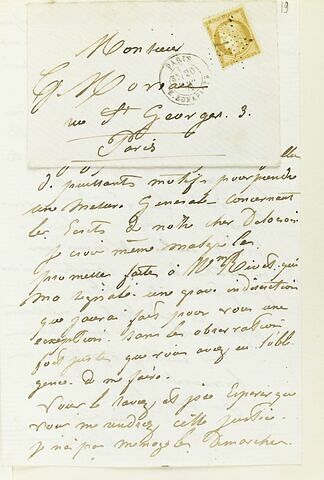 19
Monsieur
G. Moreau
rue St Georges. 3.
Paris
PARIS
de puissants motifs pour prendre
une mesure Generale concernant
les Ecrits de notre cher Delacroix
Je crois même malgré la
promesse faite à Mme Rivet qui
une grave indiscretion
que j'aurai fait pour vous une
exception. sans les observations
fort justes que vous avez eu l'obli
geance de me faire.
Vous le savez et j'ose Esperer que
vous me rendrez cette justice
je n'ai pas ménagé les Demarches